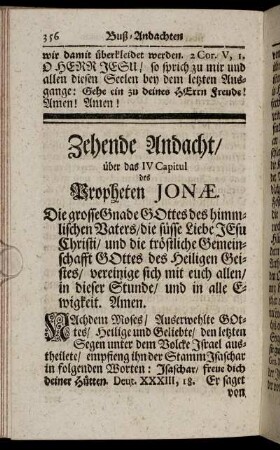 356 Buß-Andachten
wir damit überkleidet werden. 2 Cor. V, 1.
O HERR JESU/ so sprich zu mir und
allen diesen Seelen bey dem letzten Aus-
gange: Gehe ein zu deines HErrn Freude!
Amen! Amen!
Zehende Andacht/
über das IV Capitul
des
Propheten JONÆ.
Die grosse Gnade GOttes des himm-
lischen Vaters/ die süsse Liebe JEsu
Christi/ und die tröstliche Gemein-
schafft GOttes des Heiligen Gei-
stes/ vereinige sich mit euch allen/
in dieser Stunde/ und in alle E-
wigkeit. Amen.
NAchdem Moses/ Auserwehlte GOt-
tes/ Heilige und Geliebte/ den letzten
Segen unter dem Volcke Israel aus-
theilete/ empfieng ihn der Stamm Isaschar
in folgenden Worten: Isaschar/ freue dich
deiner Hütten. Deut. XXXIII, 18. Er saget
von